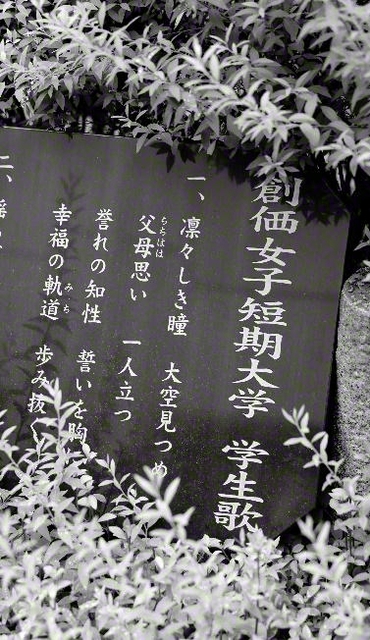 創価女子短期大学 学生歌
一、 凛々しき瞳 大空見つめ
父母思い 一人立つ
誉れの知性 誓いを胸
幸福の軌道 歩み抜く
二、